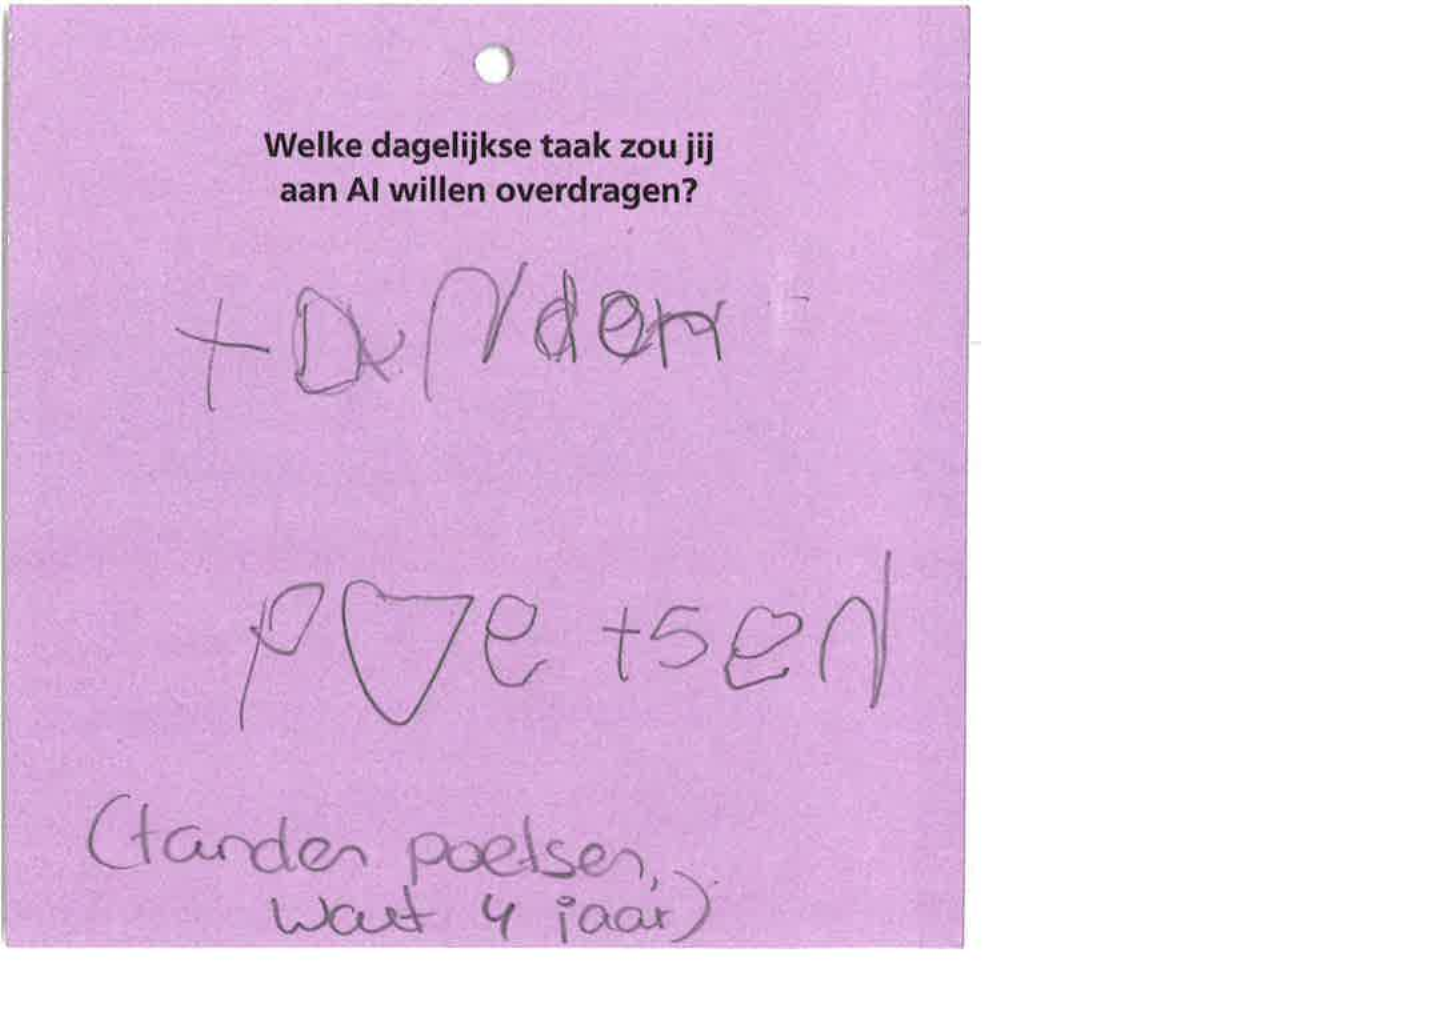 Welke dagelijkse taak zou jij
aan AI willen overdragen?
tanden
poetsen
(tanden poetsen,
want 4 jaar)